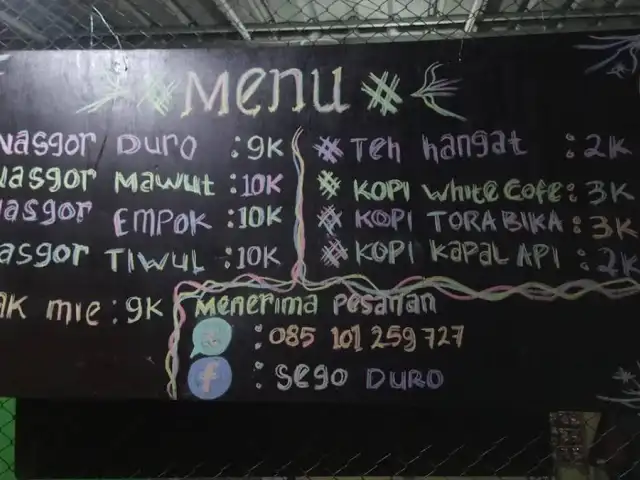 Menu
Nasgor Duro : 9K
Nasgor Mawut : 10K
Nasgor EMPOK : 10K
Nasgor TIWUL : 10K
mie : 9K
# Teh hangat : 2K
# KOPI white Cofe : 3K
# KOPI TORABIKA : 3K
# KOPI KaPaL API : 2K
Menerima Pesanan
: 085 101 259 727
f : Sego DURO